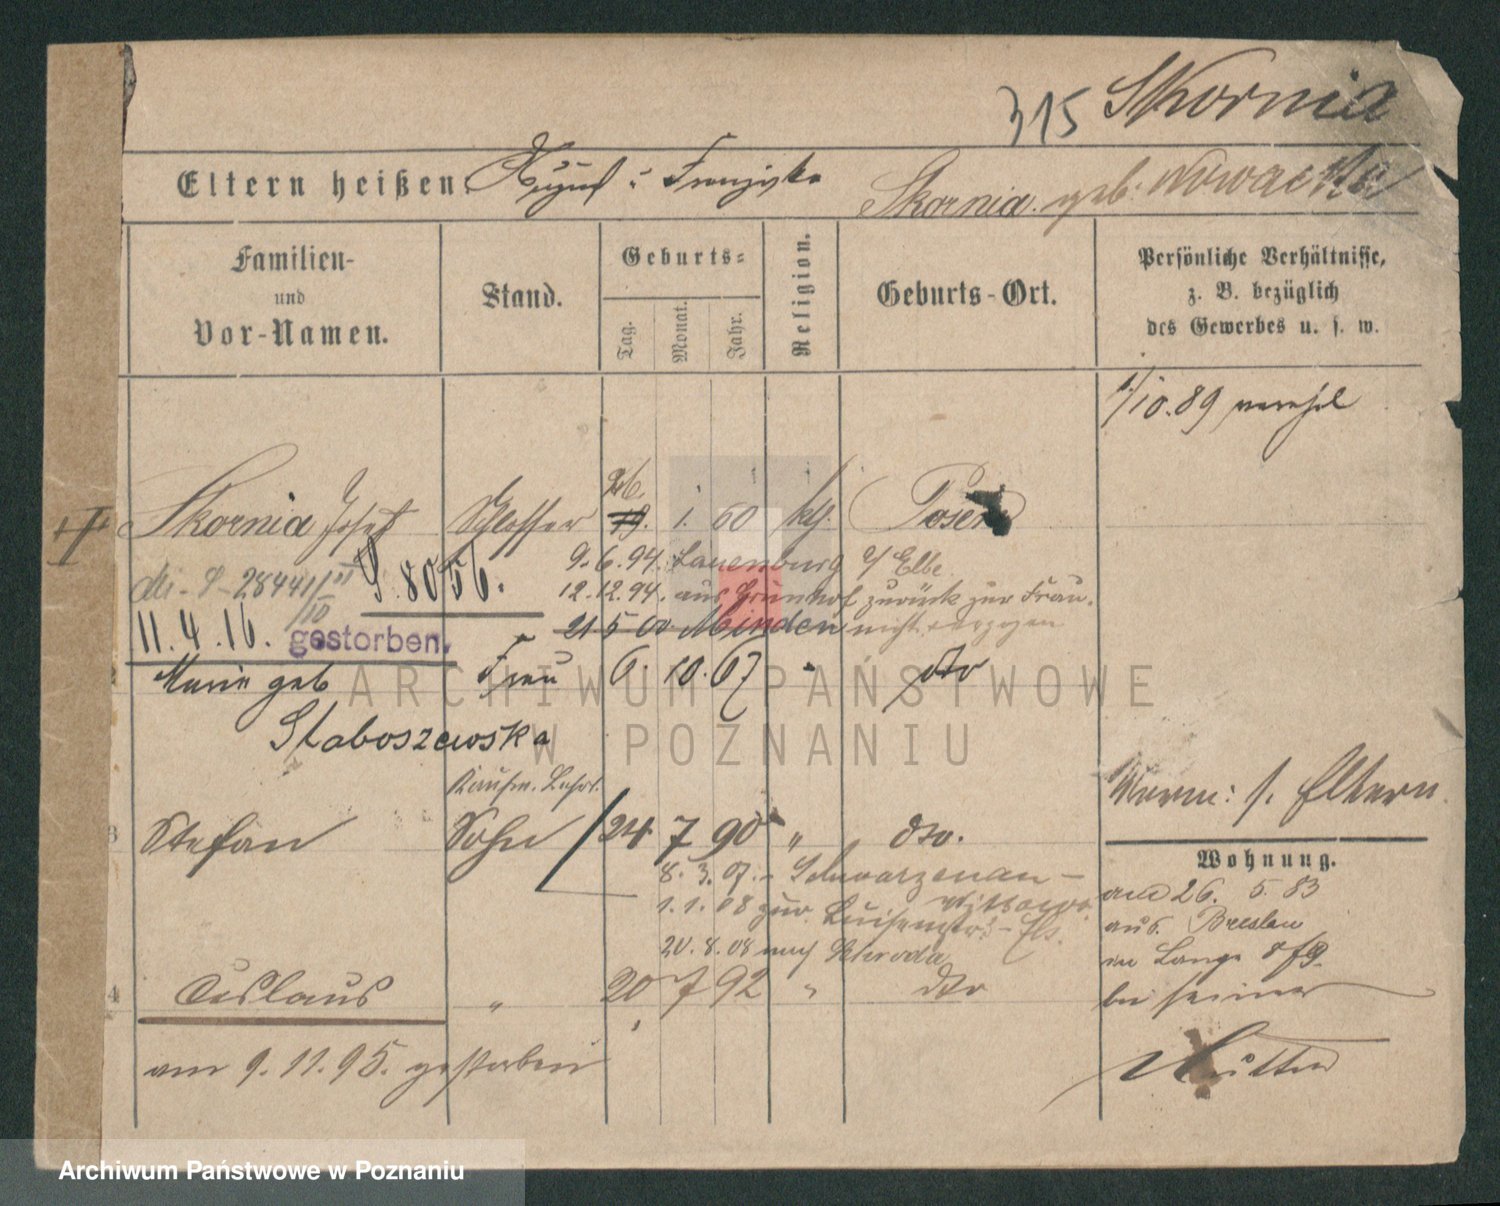 315 Skornia
Eltern heißen August u Franziska Skornia geb. Nowacka
Familien-
und
Vor-Namen.
Stand.
Geburts-
Tag.
Monat.
Jahr.
Religion.
Geburts-Ort.
Persönliche Verhältnisse,
z. B. bezüglich
des Gewerbes u. s. w.
1/10.89 vereh
Skornia Josef Schlosser 26. 19. 1. 60 kth. Posen
9.6.94. Lauenburg a/Elbe
S. 8056.
12.12.94. aus Grünhof zurück zur Frau.
11.4.16. gestorben.
21 5 00 Minden nicht verzogen
Marie geb Frau 6. 10. 67 " dto
Staboszewska
Kaufm. Lehrl.
Verm: s. Eltern
3 Stefan Sohn 24 7 90 " dto.
Wohnung.
8. 3. 07. Schwarzenau -
Witkowo
1.1.08 zur. Luisenstr.
20.8.08 nach Schroda
am 26. 5. 83
aus Breslau
in Lange
bei seiner
Mutter
4 Ceslaus " 20 7 92 " dto
am 9.11.95. gestorben
ARCHIWUM PAŃSTWOWE
W POZNANIU
Archiwum Państwowe w Poznaniu